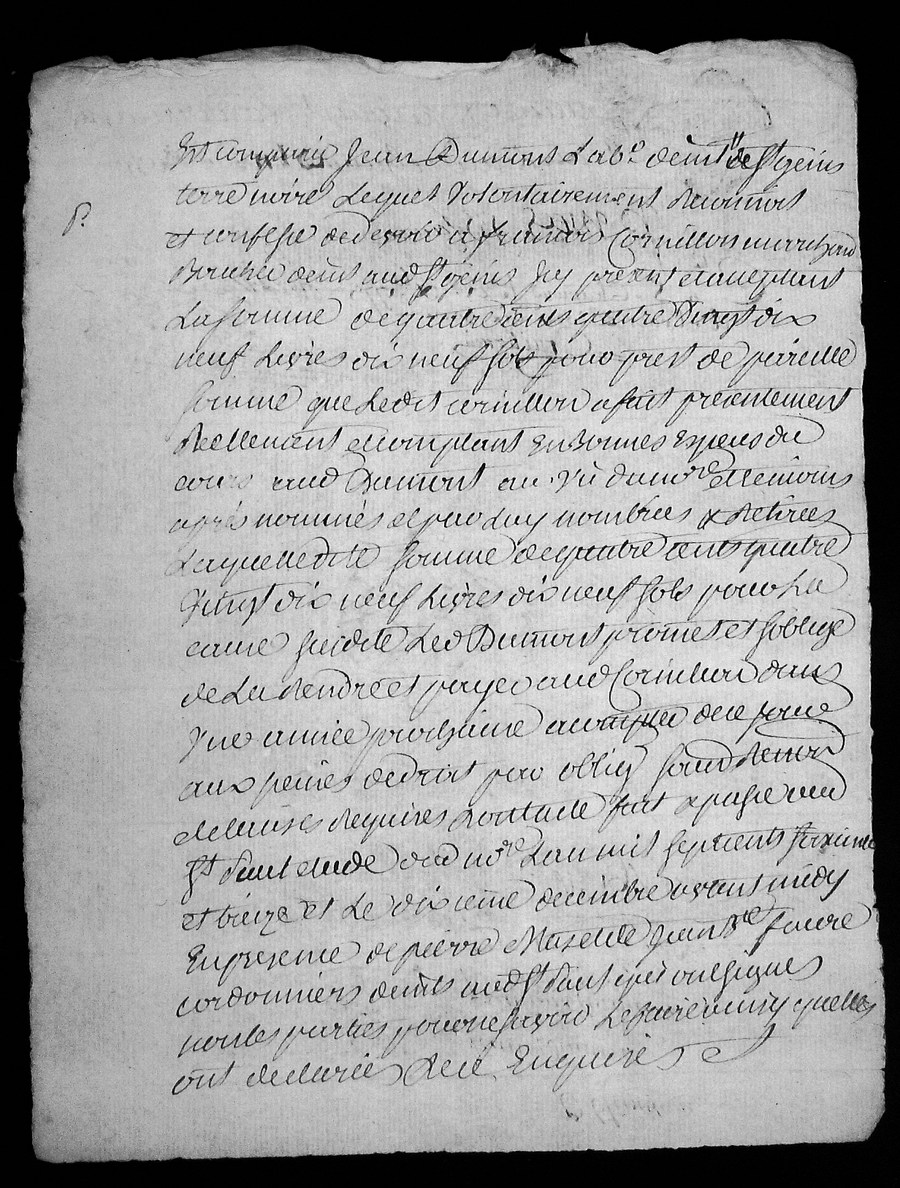 Est comparu Jean Dumont Lab.r demt. de St genis
terre noire Lequel Volontairement Reconnoit
P.
et confesse de devoir a francois Cornillon marchand
Boucher demt. aud St genis Icy present et acceptant
La somme de quatre cents quatre Vingt dix
neuf Livres dix neuf sols pour prest de pareille
somme que Ledit cornillon a fait presentement
Reellement et comptant En Bonnes Especes du
cours aud Dumont au Vû du no.re et temoins
après nommés et par Luy nombrées & Retirées
Laquelle dite somme de quatre cents quatre
Vingt dix neuf Livres dix neuf sols pour La
cause susdite Led Dumont promet et soblige
de La Rendre et payer aud Cornillon dans
Une année prochaine a compter de ce jour
aux peines de droit par oblig
et clauses Requises fait & passé aud
St Paul etude dud no.re L'an mil sept cents soixante
et treize et Le dixieme decembre avant midy
En presence de pierre Jean Bte faure
cordonniers demts aud St Paul qui ont signés
non les parties pour ne savoir Le faire ainsy quelles
ont declarées de ce Enquises